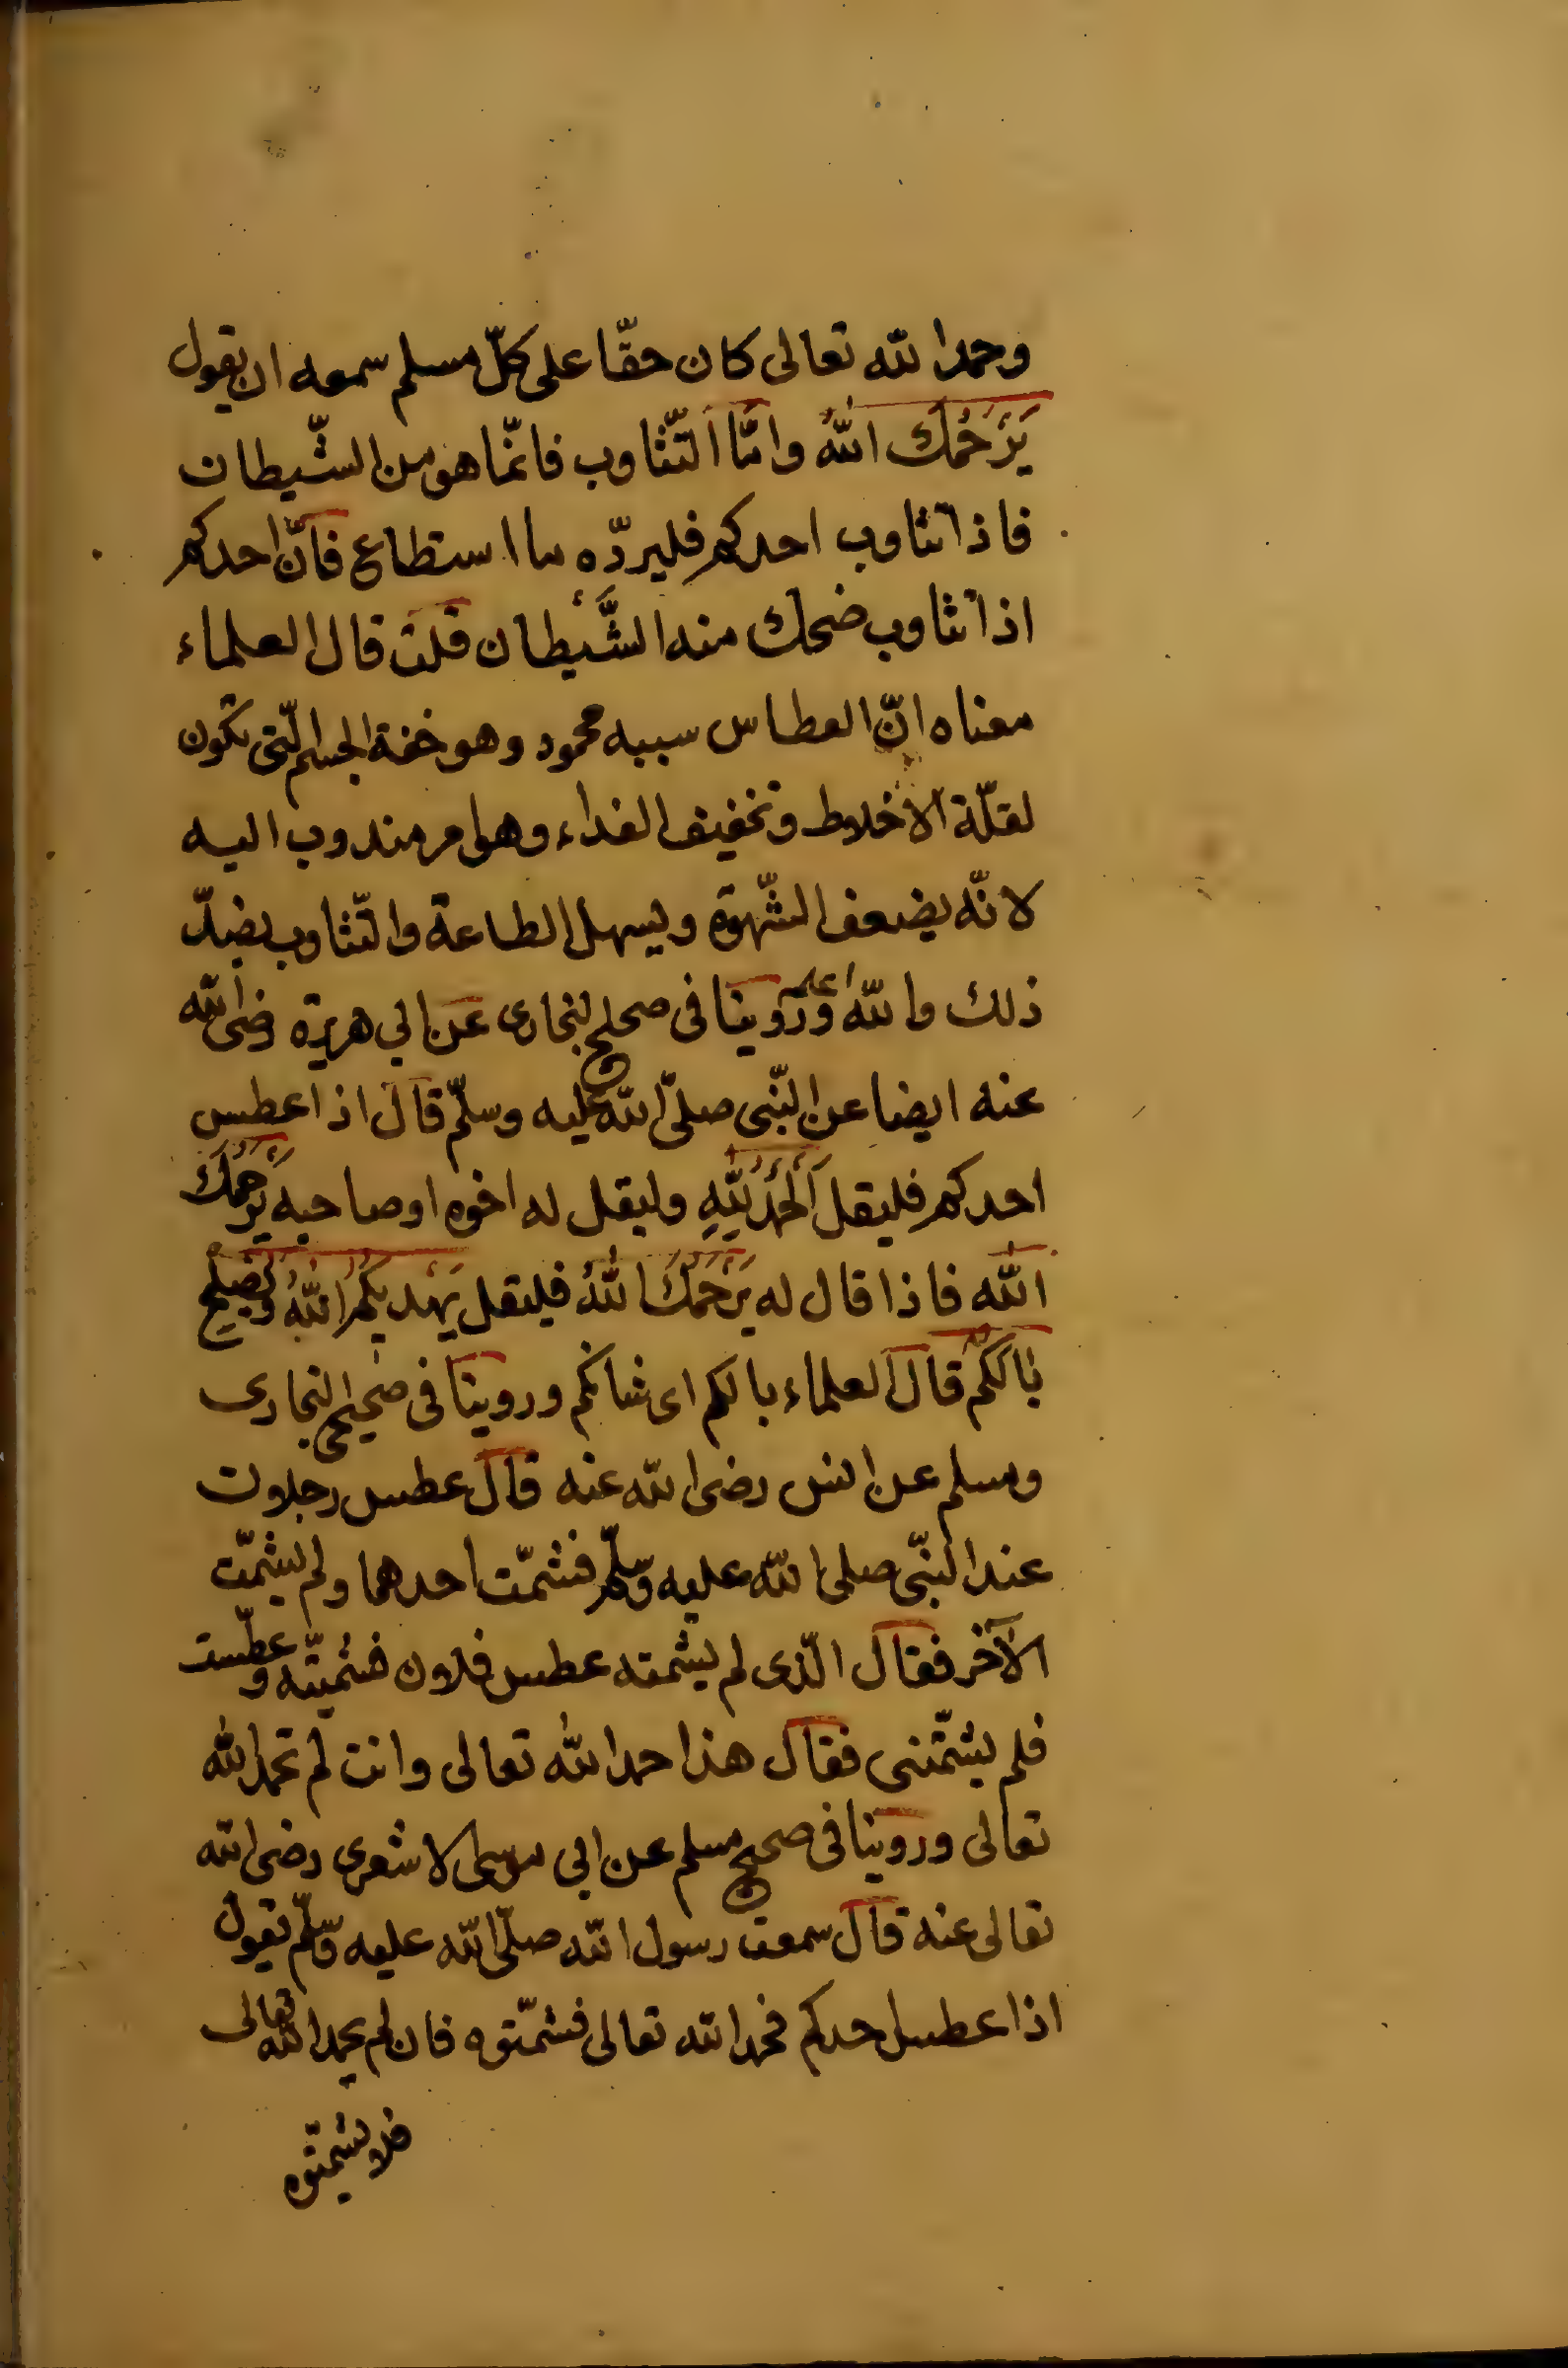 وحمد الله تعالى كان حقّا على كلّ مسلم سمعه ان يقول
يَرْحَمُكَ اللهُ وامّا التّثاوب فانّما هو من الشّيطان
فاذا تثاوب احدكم فليردّه ما استطاع فانّ احدكم
اذا تثاوب ضحك منه الشَّيْطان قلت قال العلماء
معناه انّ العطاس سببه محمود وهو خفة الجسم الّتى تكون
لقلّة الاخلاط وتخفيف الغداء وهو امر مندوب اليه
لانّه يضعف الشّهوة ويسهل الطاعة والتّثاوب بضدّ
ذلك والله اعلم وروينا فى صحيح البخارى عن ابي هريرة رضى الله
عنه ايضا عن النّبى صلىّ الله عليه وسلّم قال اذا عطس
احدكم فليقل اَلْحَمْدُ لِلّهِ وليقل له اخوه او صاحبه يَرْحَمُكَ
الله فاذا قال له يَرْحَمُكَ اللهُ فليقل يَهْدِيكُمُ اللهُ وَيُصْلِحُ
بَالَكُمْ قال العلماء بالكم اى شانكم وروينا فى صحيحى البخارى
ومسلم عن انس رضى الله عنه قال عطس رجلان
عند النّبى صلى الله عليه وسلّم فشمّت احدهما ولم يشمّت
الآخر فقال الّذى لم يشمته عطس فلان فشمّته وعطست
فلم يشمّتنى فقال هذا حمد الله تعالى وانت لم تحمد الله
تعالى وروينا فى صحيح مسلم عن ابي موسى الاشعرى رضى الله
تعالى عنه قال سمعت رسول الله صلّى الله عليه وسلّم يقول
اذا عطس احدكم فحمد الله تعالى فشمّتوه فان لم يحمد الله تعالى
فلا تشمّتوه